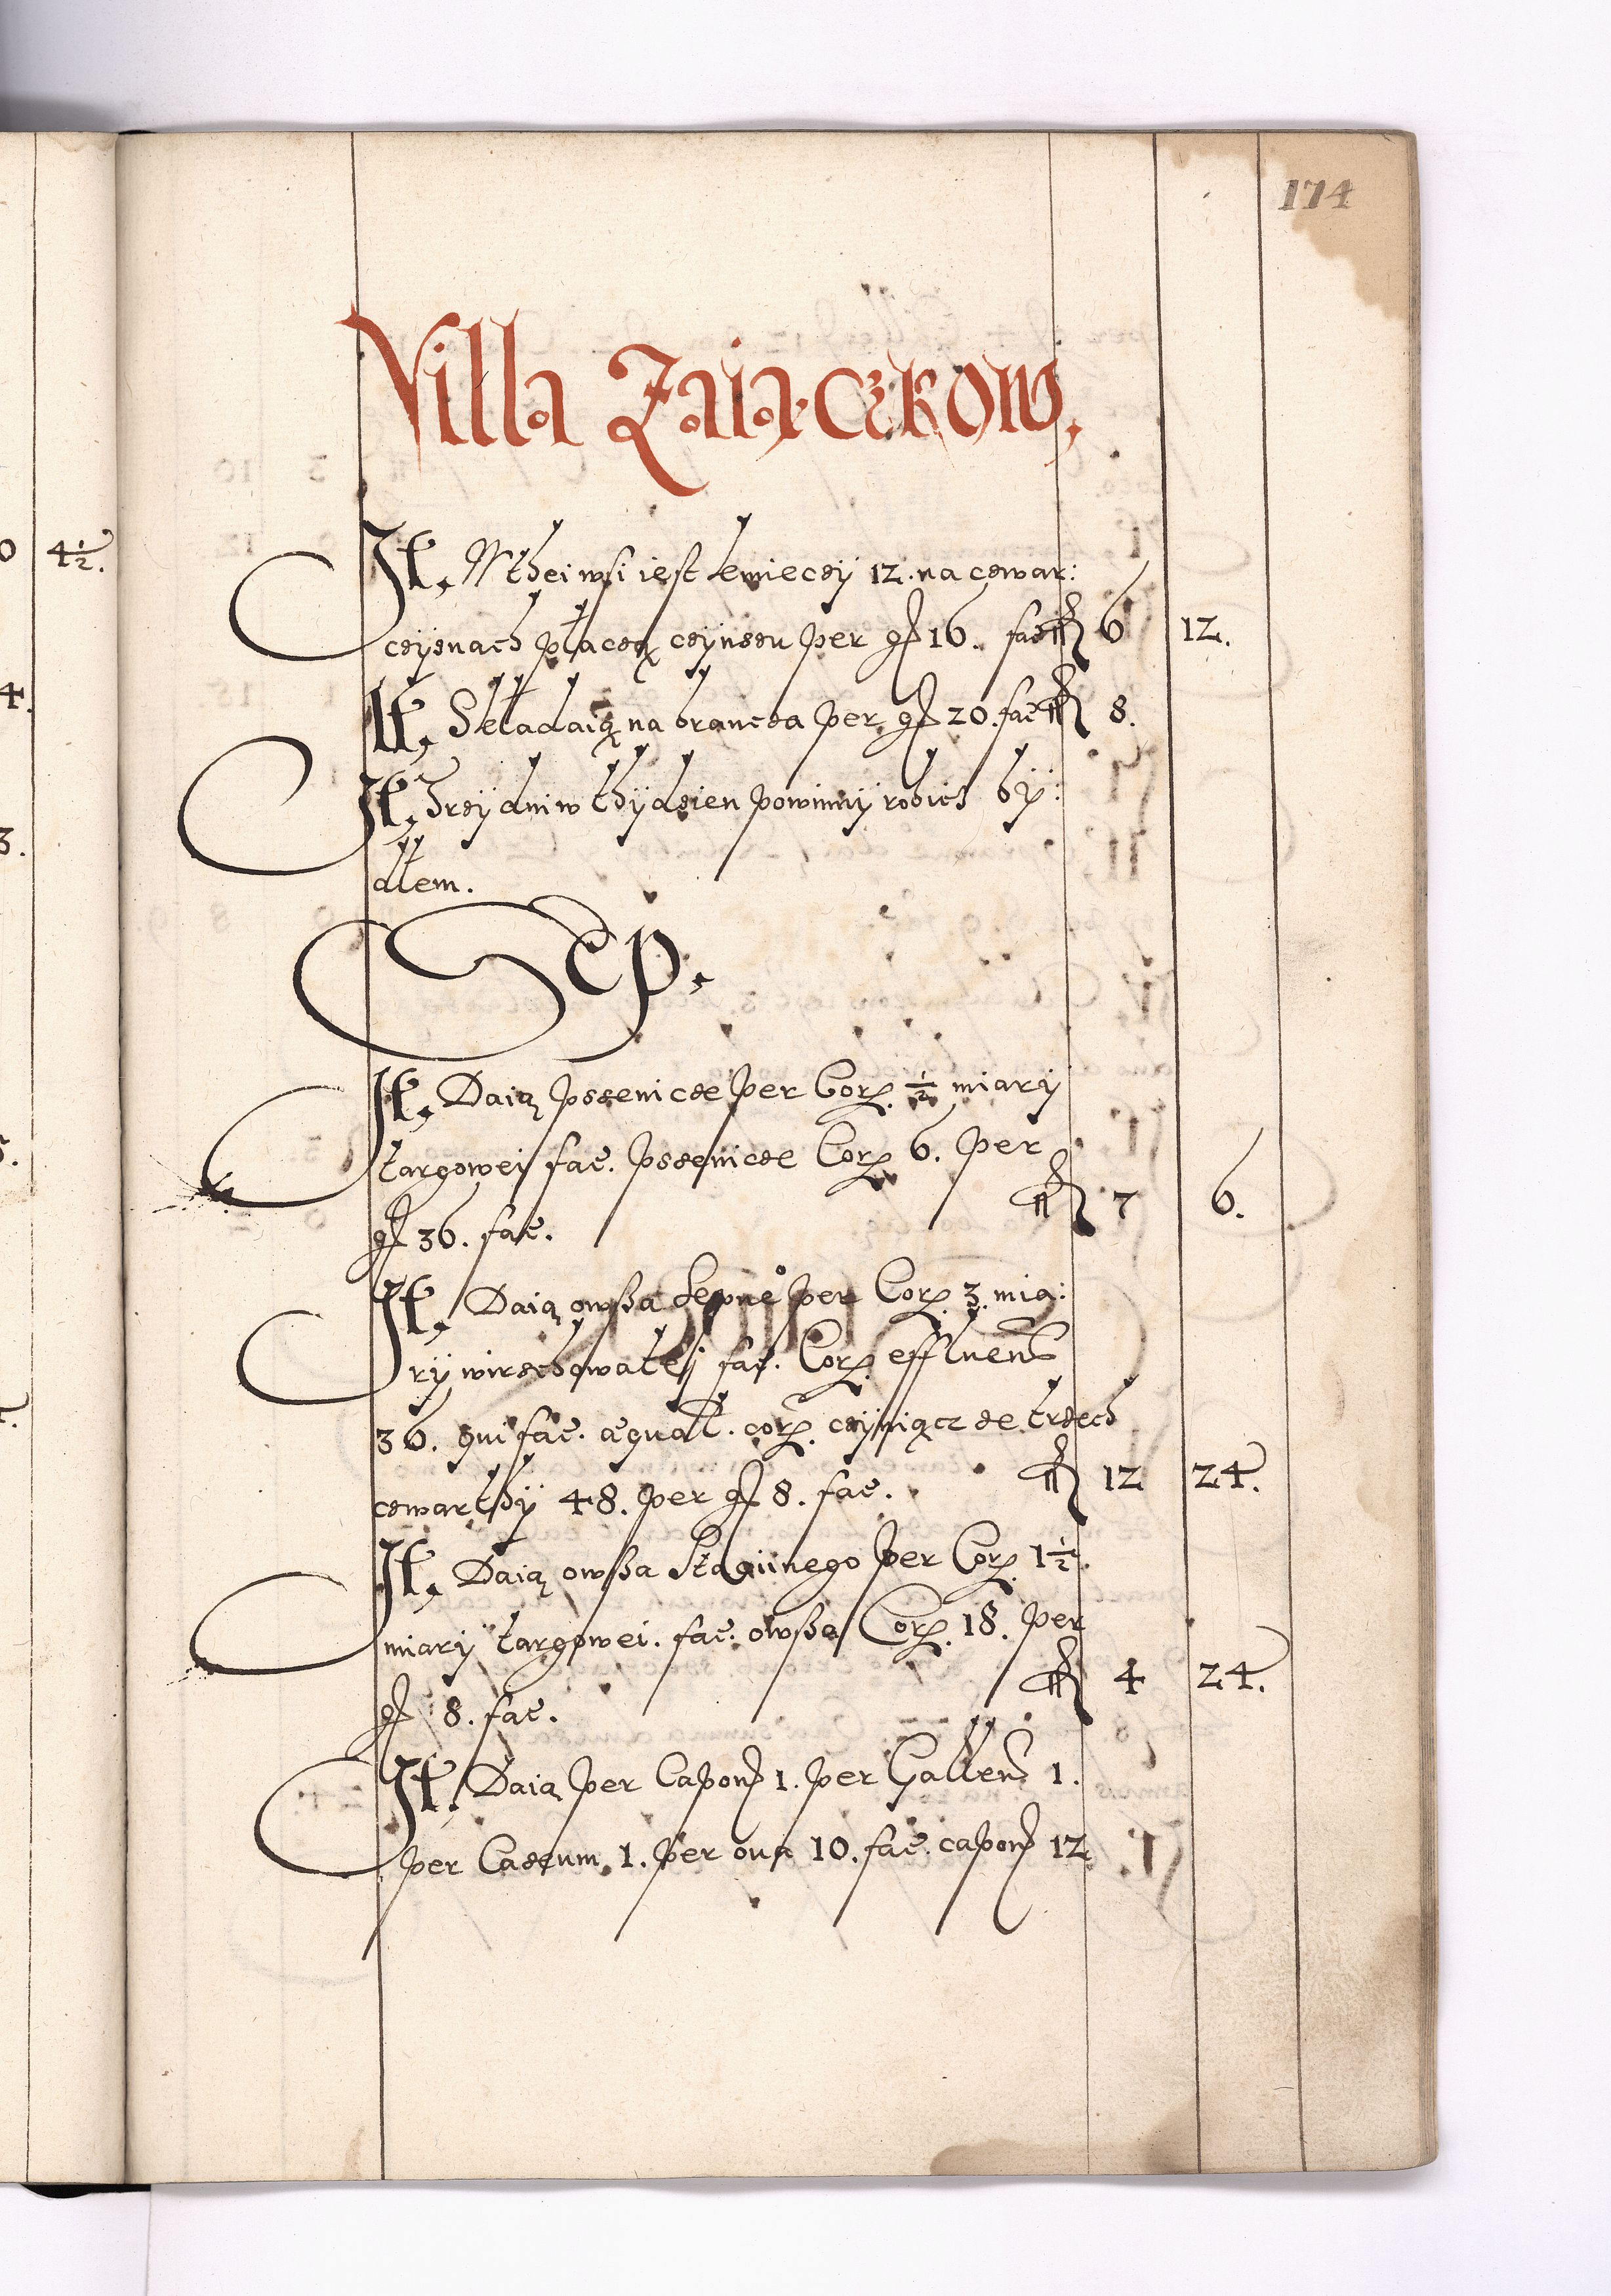 174
Villa Zaiączkow,
It. W thei wsi iest kmieczy 12. na czwar:
czyznach płaczą czynszu per gr 16. fac fl 6 12.
It. Składaią na brancza per gr 20. fac fl 8.
It. Trzy dni w thydzien powinny robicz by:
dłem.
Sep.
It. Daią pszenicze per Cor. ½ miary
targowei fac. pszenicze Cor. 6. per
gr 36. fac. fl 7 6.
It. Daią owßa Sepne° per Cor. 3. mia:
ry wirzchowatei fac. Cor. effluent
36. qui fac. æquat. cor. czyniącz ze trzech
czwarthy 48. per gr 8. fac. fl 12 24.
It. Daią owßa Staciinego per Cor. 1½.
miary targowei. fac. owßa Cor. 18. per
gr 8. fac. fl 4 24.
It. Daią per Capon 1. per Gallen 1.
per Caseum 1. per oua 10. fac. capon 12
0 4½.
4.
3.
5.